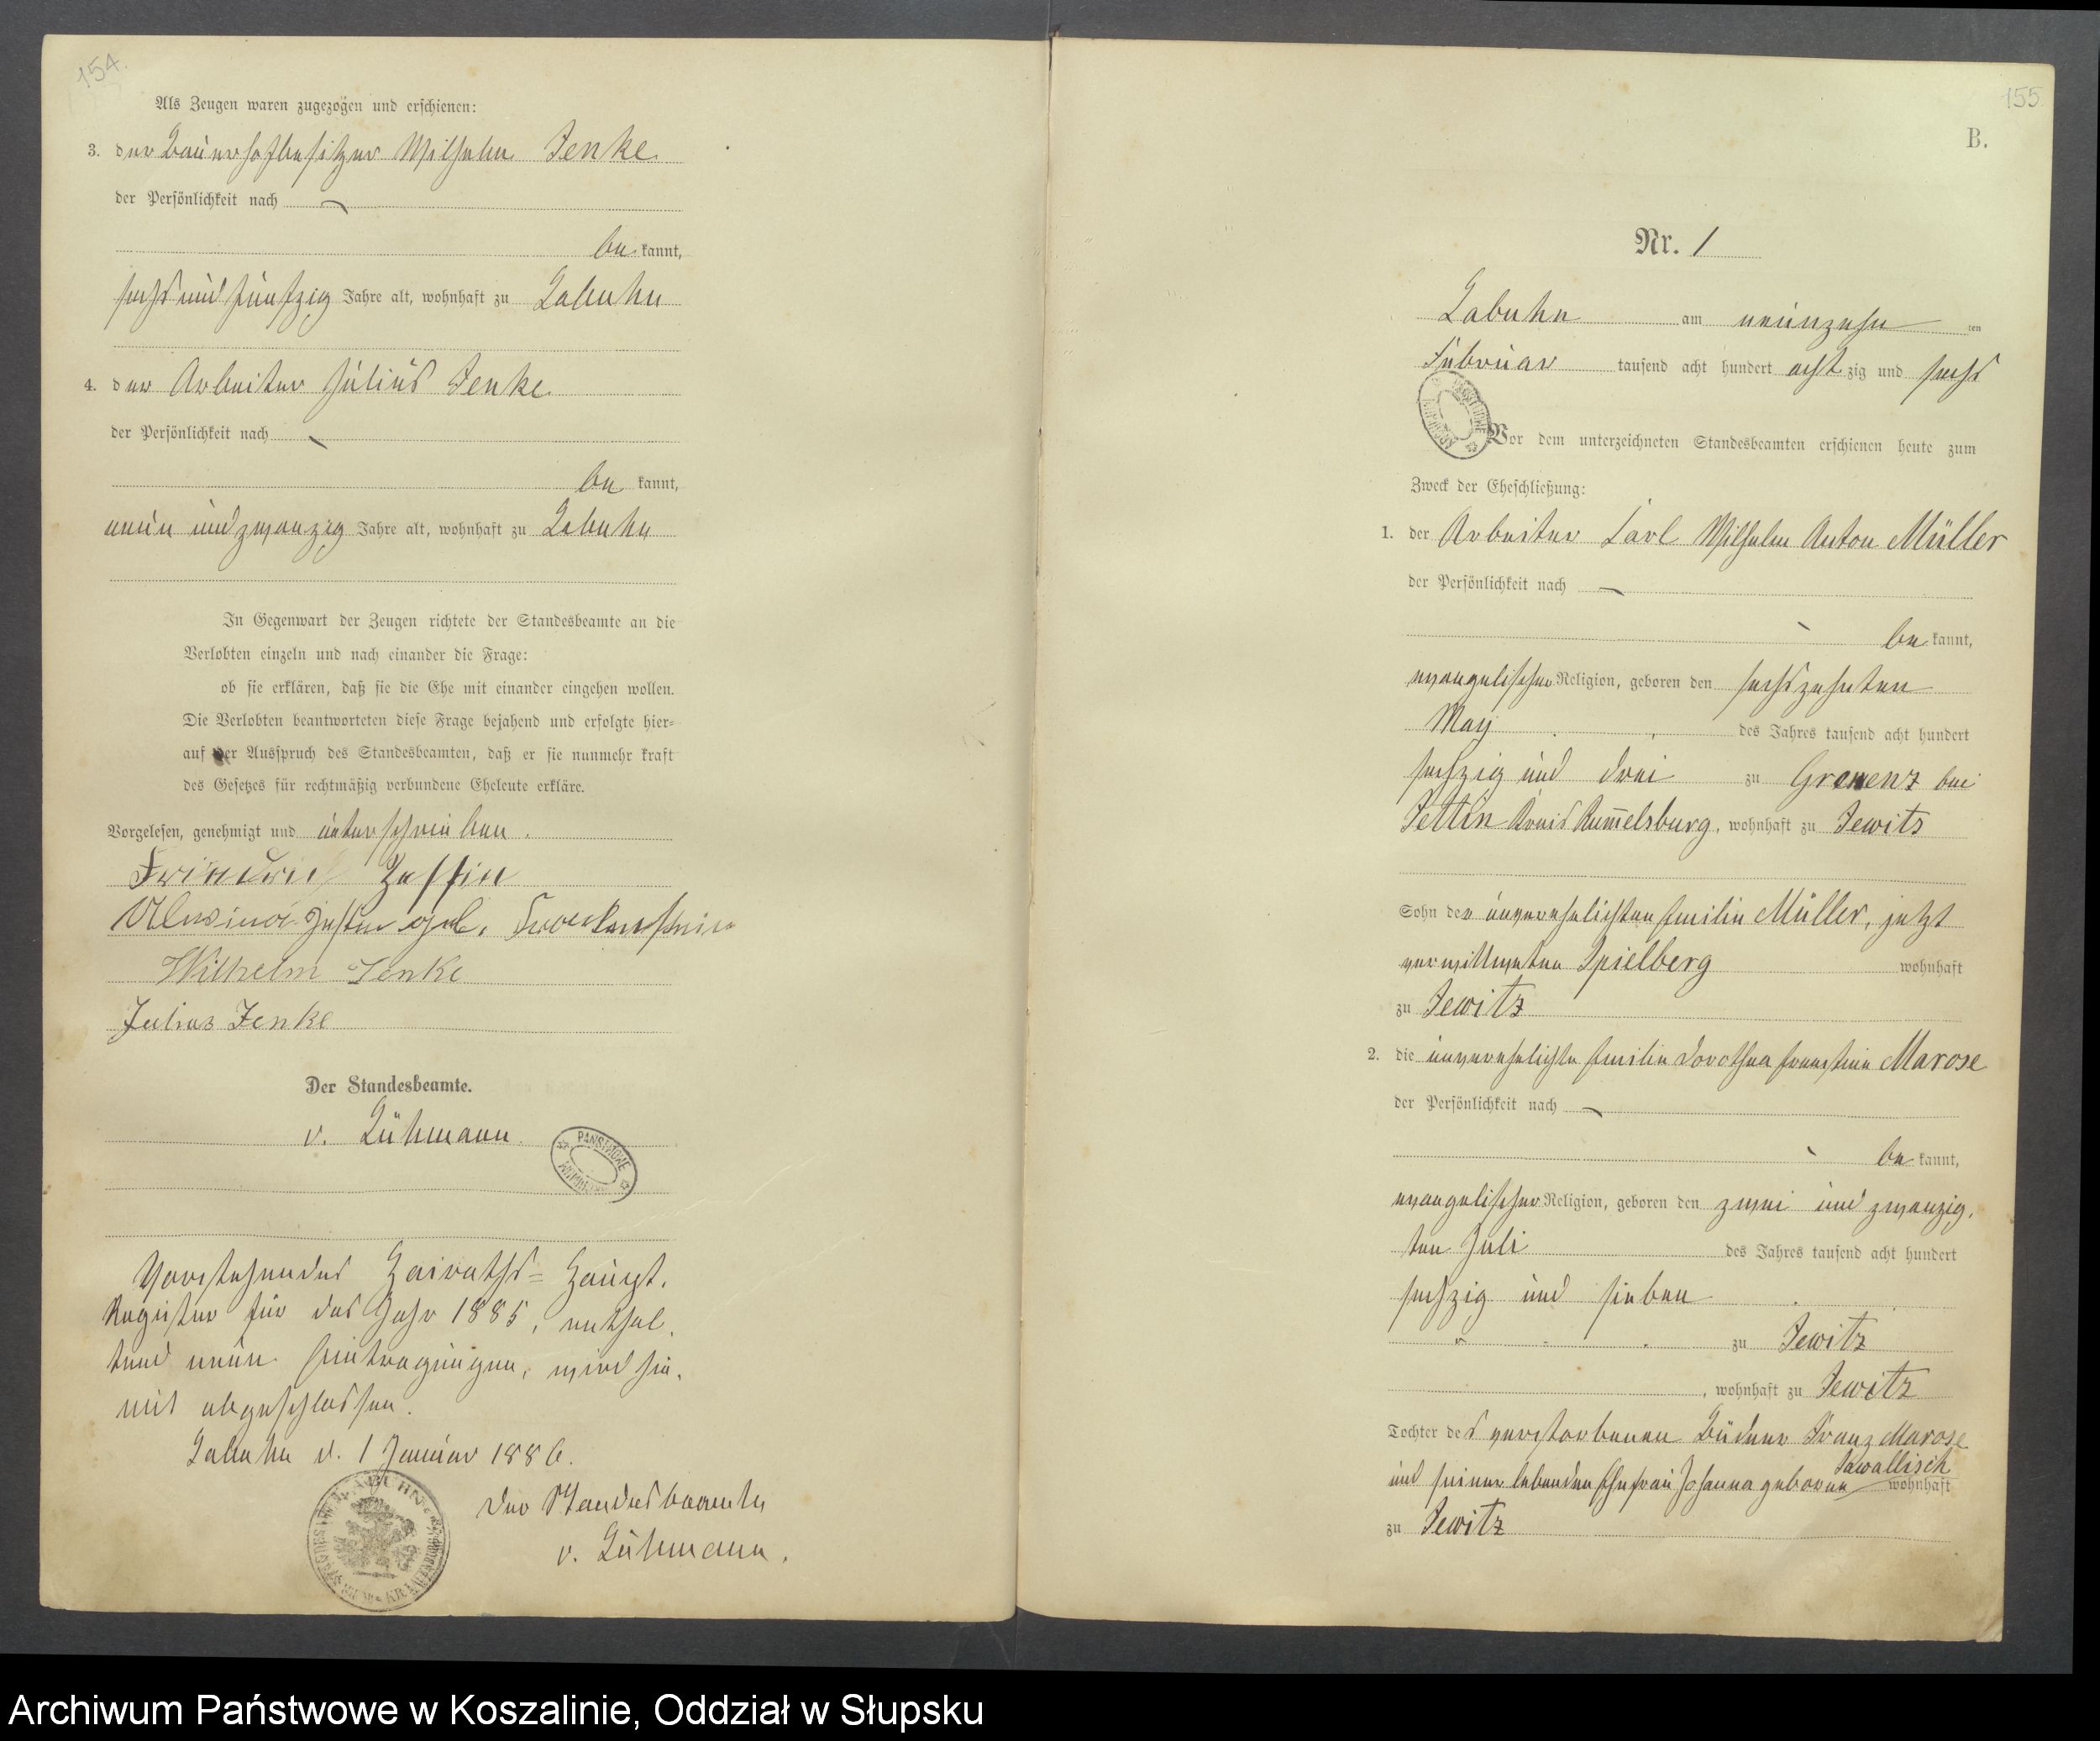 154.
Als Zeugen waren zugezogen und erschienen:
3. der Bauerhofbesitzer Wilhelm Jenke
der Persönlichkeit nach
be kannt,
sechs und fünfzig Jahre alt, wohnhaft zu Labuhn
4. der Arbeiter Julius Jenke
der Persönlichkeit nach
be kannt,
neun und zwanzig Jahre alt, wohnhaft zu Labuhn
In Gegenwart der Zeugen richtete der Standesbeamte an die
Verlobten einzeln und nach einander die Frage:
ob sie erklären, daß sie die Ehe mit einander eingehen wollen.
Die Verlobten beantworteten diese Frage bejahend und erfolgte hier=
auf der Ausspruch des Standesbeamten, daß er sie nunmehr kraft
des Gesetzes für rechtmäßig verbundene Eheleute erkläre.
Vorgelesen, genehmigt und unterschrieben.
Friedrich
geb.
Wilhelm Jenke
Julius Jenke
Der Standesbeamte.
v. Lühmann
PAŃSTWOWE
Vorstehendes Heiraths= Haupt.
Register für das Jahr 1885, enthal.
tend neun Eintragungen, wird hie.
mit abgeschlossen.
Labuhn d. 1 Januar 1886.
Der Standesbeamte
v. Lühmann.
155
B.
Nr. 1
Labuhn am neunzehn ten
Februar tausend acht hundert acht zig und sechs
Vor dem unterzeichneten Standesbeamten erschienen heute zum
Zweck der Eheschließung:
1. der Arbeiter Carl Wilhelm Anton Müller
der Persönlichkeit nach
be kannt,
evangelischer Religion, geboren den sechszehnten
May des Jahres tausend acht hundert
sechzig und drei zu bei
Kreis Rummelsburg, wohnhaft zu Jewitz
Sohn der unverehelichten Emilie Müller, jetzt
verwittweten Spielberg wohnhaft
zu Jewitz
2. die unverehelichte Emilie Dorothea Ernestine Marose
der Persönlichkeit nach
be kannt,
evangelischer Religion, geboren den zwei und zwanzig.
ten Juli des Jahres tausend acht hundert
sechzig und sieben
zu Jewitz
, wohnhaft zu Jewitz
Tochter des verstorbenen Büdner Franz Marose
und seiner lebenden Ehefrau Johanna geborene Sawallisch wohnhaft
zu Jewitz
Archiwum Państwowe w Koszalinie, Oddział w Słupsku